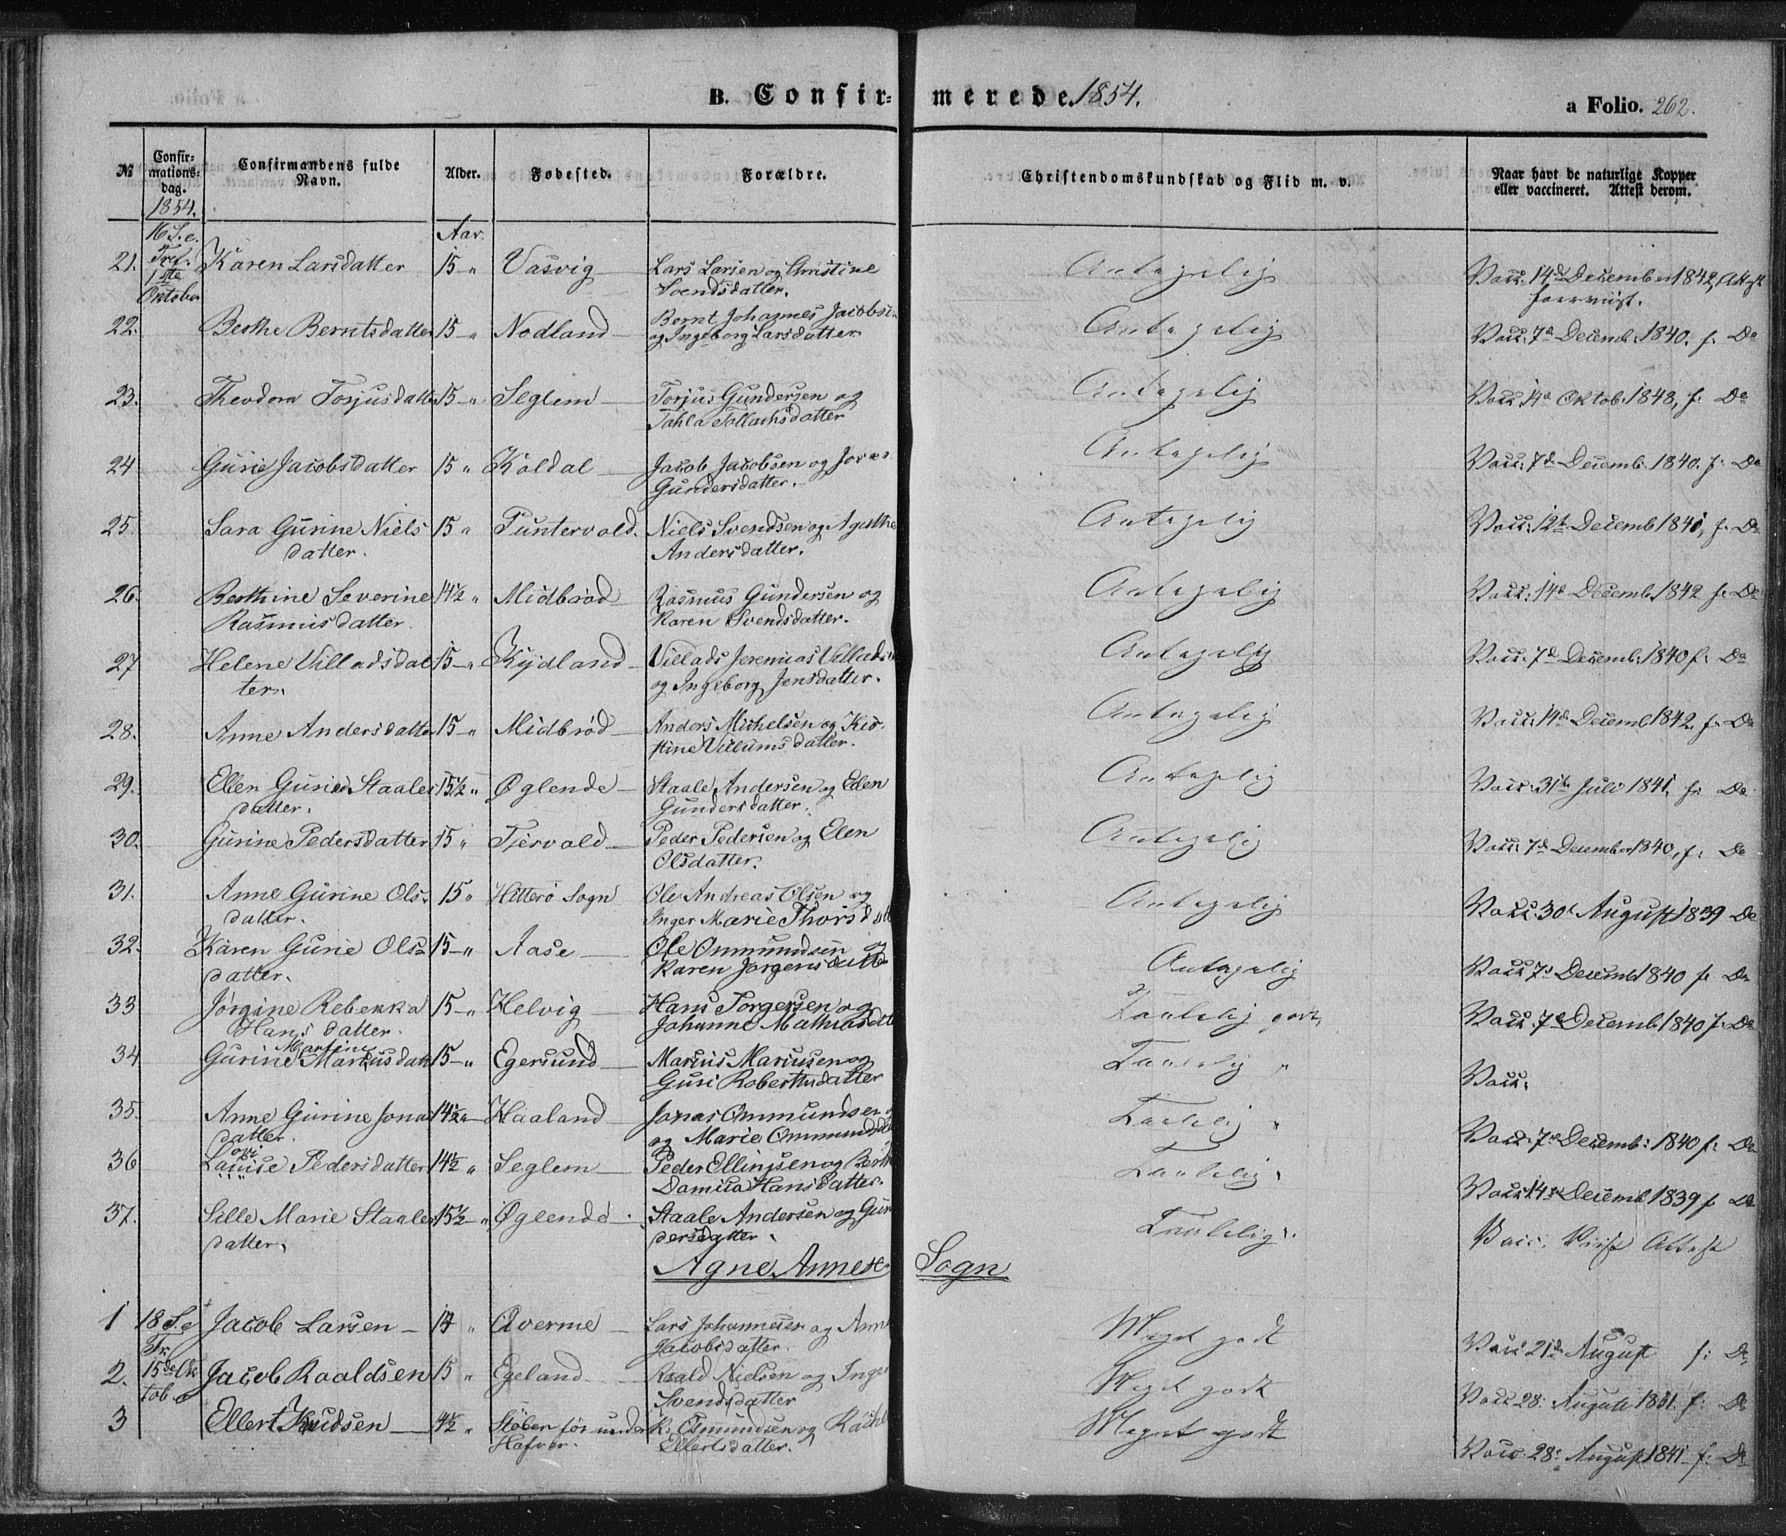 B. Confirmerede. 1854.
a Folio. 262.
№
Confirmations-dag.
Confirmandens fulde Navn.
Alder.
Fødested.
Forældre.
Christendomskundskab og Flid m. v.
Naar havt de naturlige Kopper eller vaccineret. Attest derom.
1854.
16 S. e. Tref. 1ste Oktober
Aar.
21. Karen Larsdatter 15 „ Vasvig Lars Larsen og Christine Svendsdatter. Antagelig Vacc. 14d December 1842, Attest foreviist.
22. Berthe Berntsdatter 15 „ Nodland Bernt Johannes Jacobsen og Ingeborg Larsdatter Antagelig Vacc. 7d Decemb. 1840. f. Do
23. Theodora Torjusdatter 15 „ Seglem Torjus Gundersen og Tahla Tollachsdatter Antagelig Vacc. 14d Oktob. 1848, f. Do
24 Gurie Jacobsdatter 15 „ Koldal Jacob Jacobsen og Gundersdatter. Antagelig Vacc. 7d Decemb. 1840. f. Do
25. Sara Gurine Nielsdatter. 15 „ Puntervold. Niels Svendsen og Agathe Andersdatter. Antagelig Vacc. 12t Decemb 1841, f. Do
26. Berthine Severine Rasmusdatter. 14½ „ Midbrød Rasmus Gundersen og Karen Svendsdatter. Antagelig Vacc. 14d Decemb. 1842 f. Do
27 Helene Villadsdatter. 15 „ Kydland Villads Jeremias Villads og Ingeborg Jensdatter. Antagelig Vacc. 7d Decemb. 1840 f. Do
28. Anne Andersdatter 15 „ Midbrød Anders Michelsen og Kistine Villumsdatter. Antagelig Vacc. 14d Decemb 1842. f. Do
29. Ellen Gurie Staalesdatter. 15½ „ Øglende Staale Andersen og Eden Gundersdatter. Antagelig Vacc. 31te Juli 1841. f. Do
30. Gurine Pedersdatter 15 „ Tjervold Peder Pedersen og Elen Olsdatter. Antagelig Vacc. 7d December 1840, f. Do
31. Anne Gurine Olsdatter. 15 „ Hitterø Sogn Ole Andreas Olsen og Inger Marie Thorsdatt Antagelig Vacc. 30t August 1839 Do
32. Karen Gurie Olsdatter. 15 „ Aase Ole Ommundsen og Karen Jørgensdatter Antagelig Vacc 7d Decemb 1840 f. Do
33 Jørgine Rebekka Hansdatter. 15 „ Helvig Hans Torgersen og Johanne Mathiasdtt Taalelig godt, Vacc 7d Decemb 1840 f. Do
34 Gurine Martine Markusdatt 15 „ Egersund Marius Mariusen og Guri Robertsdatter Taalelig „ Vacc.
35. Anne Gurine Jonasdatter. 14½ „ Haaland Jonas Ommundsen og Marie Ommundsdtt Taalelig „ Vacc. 7d Decemb: 1840 f. Do
36 Louise Pedersdatter 14½ „ Seglem Peder Ellingsen og Berthe Damila Hansdatter. Taalelig „ Vacc. 14d Decemb 1839 f Do
37. Sille Marie Staalesdatter. 15½ „ Øglende Staale Andersen og Gundersdatter. Taalelig „. Vacc. Viist Attest
Agne Annex Sogn
1 18 S. e. Tr. 15de Oktob. Jacob Larsen 14 „ Averme Lars Johannesen og Anne Jacobsdatter. Meget godt Vacc 21d August f: Do
2. Jacob Raaldsen 15 „ Egeland Raald Nielsen og Inger Svendsdatter Meget godt Vacc 28. August 1831. f: Do
3 Ellert Knudsen 14½ „ Støber K: Osmundsen og Rachel Ellertsdatter. Meget godt Vacc. 28: August 1841 f: Do